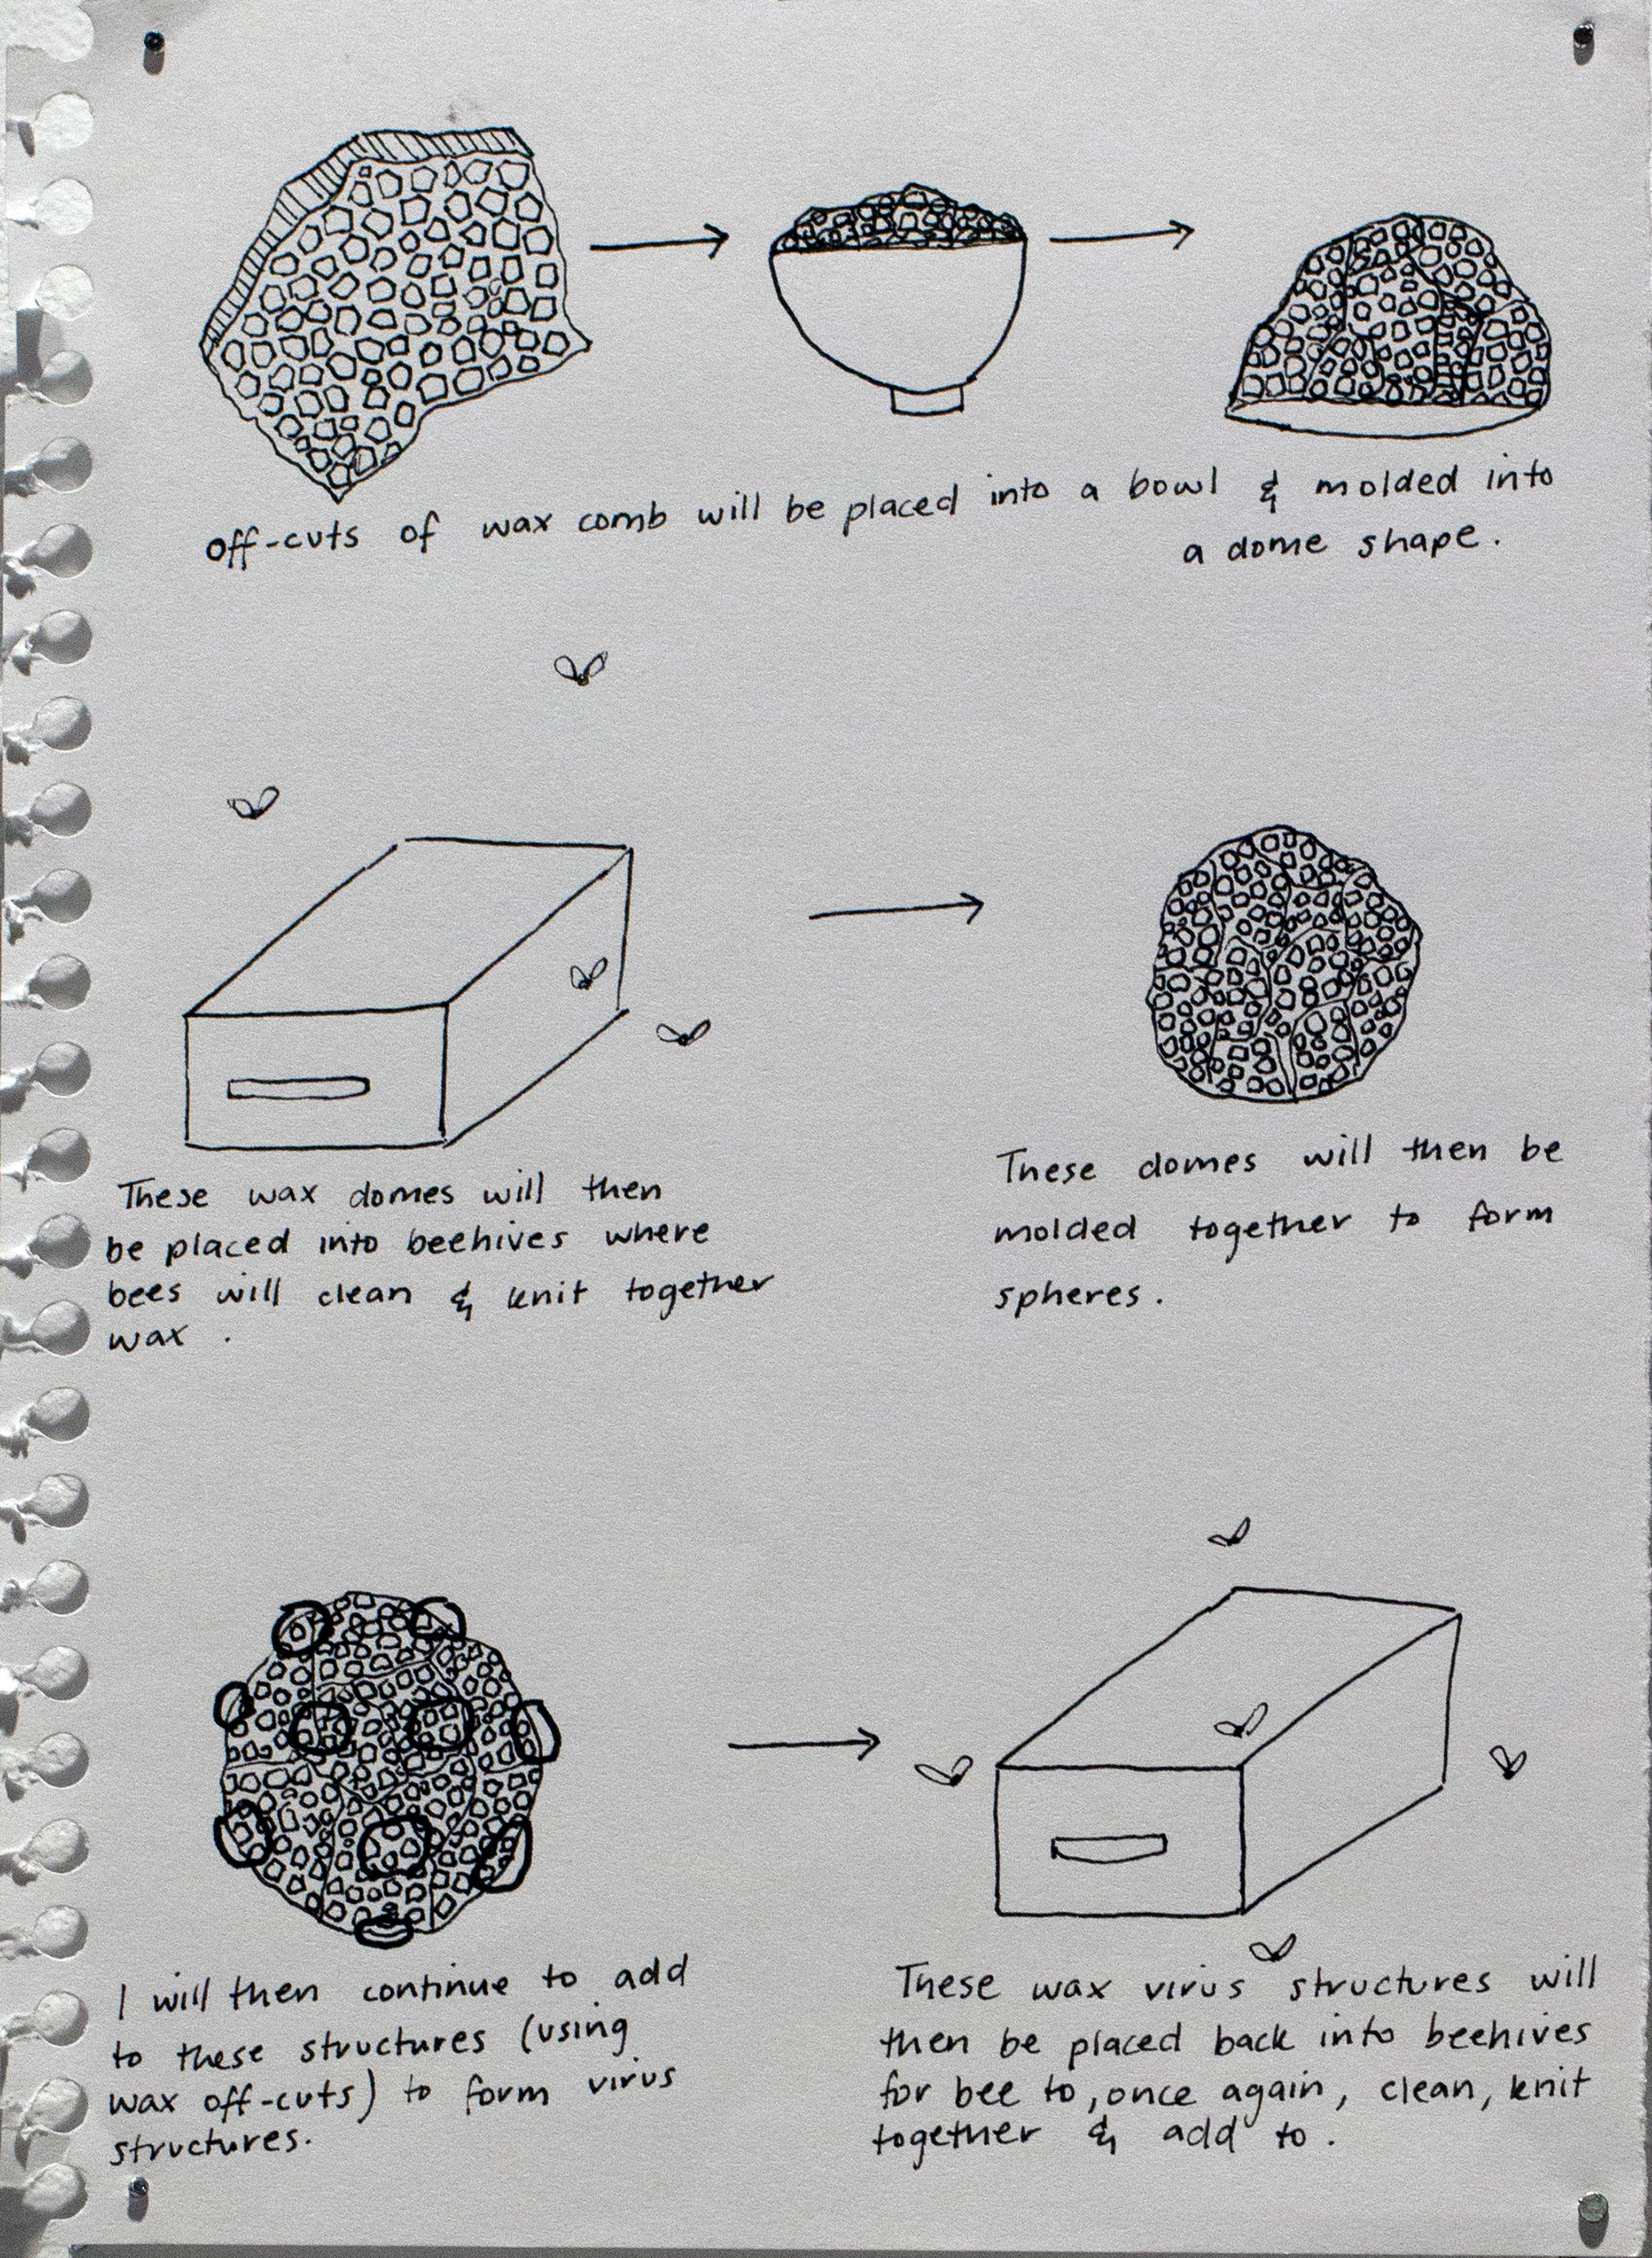 off-cuts of wax comb will be placed into a bowl & molded into
a dome shape.
These wax domes will then
be placed into beehives where
bees will clean & knit together
wax .
These domes will then be
molded together to form
spheres.
I will then continue to add
to these structures (using
wax off-cuts) to form virus
structures.
These wax virus structures will
then be placed back into beehives
for bee to, once again, clean, knit
together & add to.